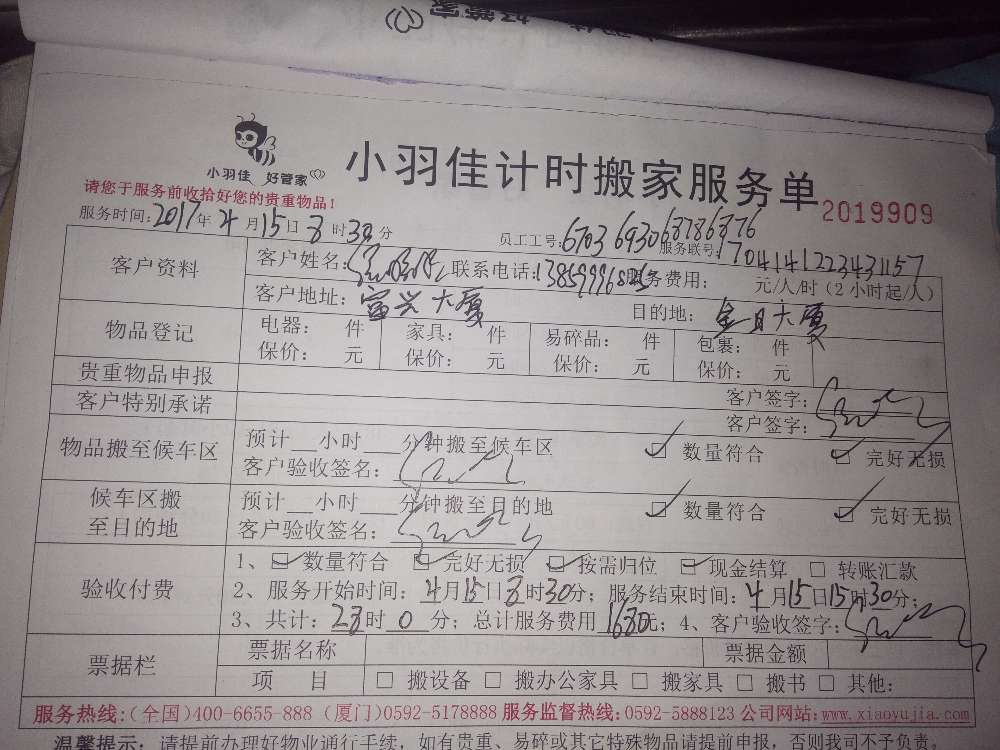 小羽佳 好管家
小羽佳计时搬家服务单
2019909
请您于服务前收拾好您的贵重物品！
服务时间:2017年4月15日8时30分
员工工号:6703 6930 6878 6776
服务联号:1704141223431157
客户资料
客户姓名: 联系电话: 服务费用： 元/人/时（2小时起/人）
客户地址：富兴大厦 目的地：金日大厦
物品登记
电器： 件 家具： 件 易碎品： 件 包裹： 件
保价： 元 保价： 元 保价： 元 保价： 元
贵重物品申报 客户签字:
客户特别承诺 客户签字:
物品搬至候车区
预计__小时___分钟搬至候车区 ☑ 数量符合 ☑ 完好无损
客户验收签名:
候车区搬至目的地
预计__小时___分钟搬至目的地 ☑ 数量符合 ☑ 完好无损
客户验收签名:
验收付费
1、☑ 数量符合 ☑ 完好无损 ☑ 按需归位 ☑ 现金结算 □ 转账汇款
2、服务开始时间：4月15日8时30分；服务结束时间：4月15日15时30分；
3、共计：28时0分；总计服务费用1680元；4、客户验收签字:
票据栏
票据名称 票据金额
项 目 □ 搬设备 □ 搬办公家具 □ 搬家具 □ 搬书 □ 其他:
服务热线:(全国)400-6655-888 (厦门)0592-5178888 服务监督热线:0592-5888123 公司网站:www.xiaoyujia.com
温馨提示：请提前办理好物业通行手续，如有贵重、易碎或其它特殊物品请提前申报，否则我司不予负责。